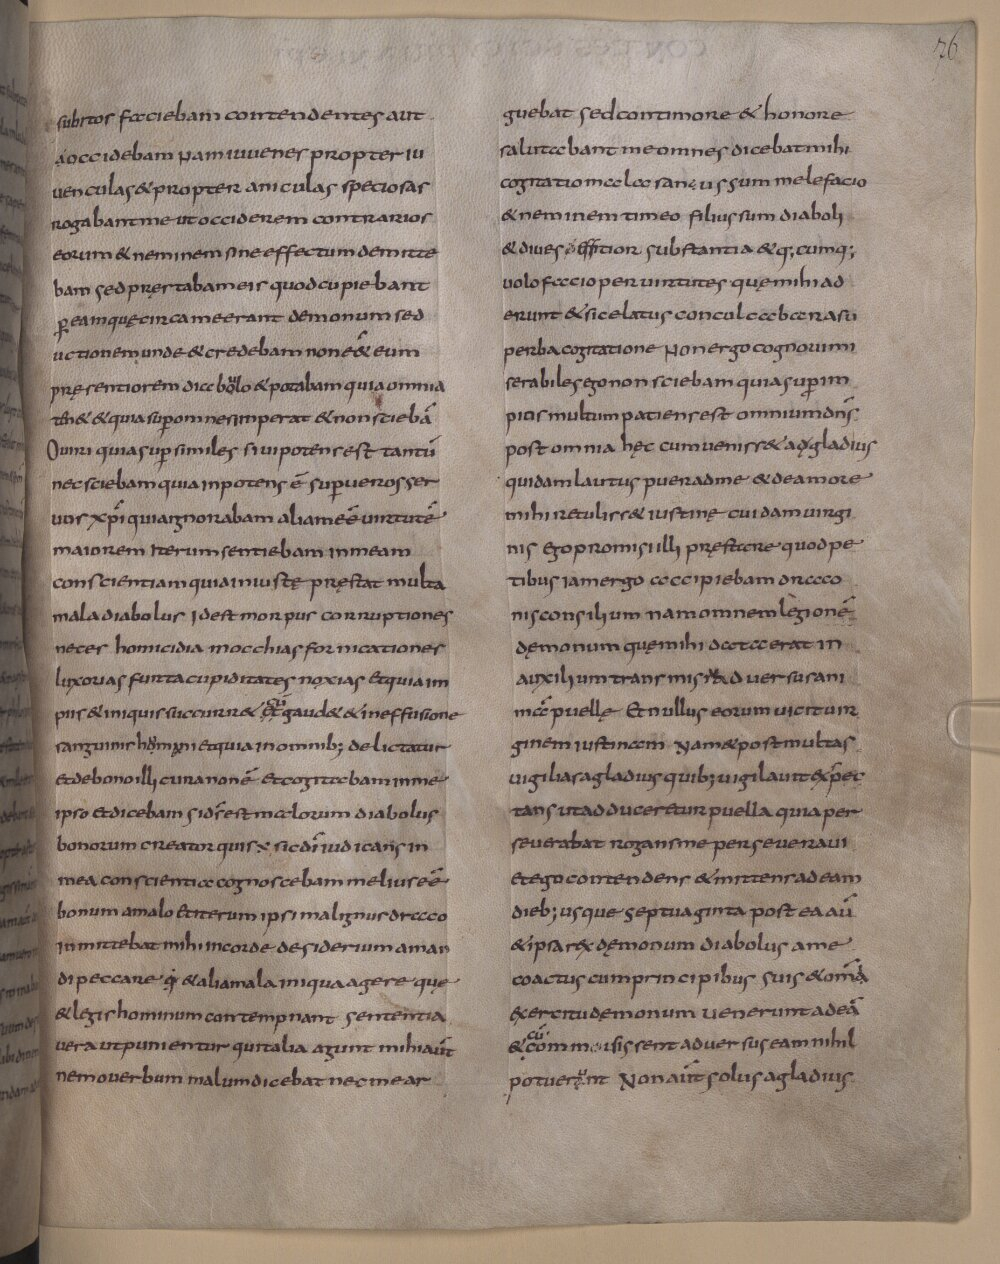 76
subitos faciebam contendentes aut
aoccidebam Nam iuvenes propter iu
venculas & propter aniculas speciosas
rogabant me ut occiderem contrarios
eorum & neminem sine effectum demitte
bam sed pręstabam eis quod cupiebant
ꝑ eam quę circa me erant demonum sed
uctionem unde & credebam non e& eum
pręsentiorem diabolo & putabam quia omnia
& quia suꝑ omnes imperat & non sciebā
O viri quia suꝑ similes sivi potens est tantū
nec sciebam quia inpotens ē suꝑ veros ser
uos xp̄i quia ignorabam aliam eē virtutē
maiorem Iterum sentiebam in meam
conscientiam quia iniustę pręstat multa
mala diabolus Id est morpus corruptiones
neces homicidia mochias fornicationes
luxorias furta cupiditates noxias Et quia im
piis & iniquis succurr& & gaud& & in effusione
sanguinis homini Et quia in omnib; delictatur
Et de bono illi cura non ē Et cogitabam in me
ipso Et dicebam si dš est malorum diabolus
bonorum creator quis x sic dī iudicans in
mea conscientia cognoscebam melius eē
bonum a malo Et iterum ipsi malignus draco
inmittebat mihi in corde desiderium aman
di peccare & alia mala iniqua agere que
& legis hominum contempnant sententia
vera ut punientur qui talia agunt mihi aūt
nemo verbum malum dicebat nec me ar
guebat sed cont timore & honore
salutabant me omnes dicebat mihi
cogitatio mala sanus sum malefacio
& neminem timeo filius sum diaboli
& dives efftior substantia & q;cumq;
volo facio per virtutes quę mihi ad
erunt & sic elatus conculcabar a su
perba cogitatione Non ergo cognovi mi
serabiles ego non sciebam quia suꝑ im
pius multum patiens est omnium dn̄s
post omnia hęc cum veniss& agladius
quidam lautus puer ad me & de amore
mihi retuliss& iustinę cuidam virgi
nis ego promisi illi pręstare quod pe
tibus iam ergo accipiebam draco
nis consilium nam omnem legionē
dęmonum quę mihi data erat in
auxilium transmisi adversus ani
mā puellę Et nullus eorum vicit vir
ginem iustinam Nam & post multas
vigilias agladius quib; vigilavit exꝑec
tans ut adduceretur puella quia per
severabat rogans me perseveravi
et ego contendens & mittens ad eam
dieb; usque septuaginta post ea aū
& ipsa rex dęmonum diabolus a me
coactus cum principibus suis & omā
exercitu dęmonum venerunt ad eā
& cū commisissent adversus eam nihil
potuerunt Non aūt solus agladius